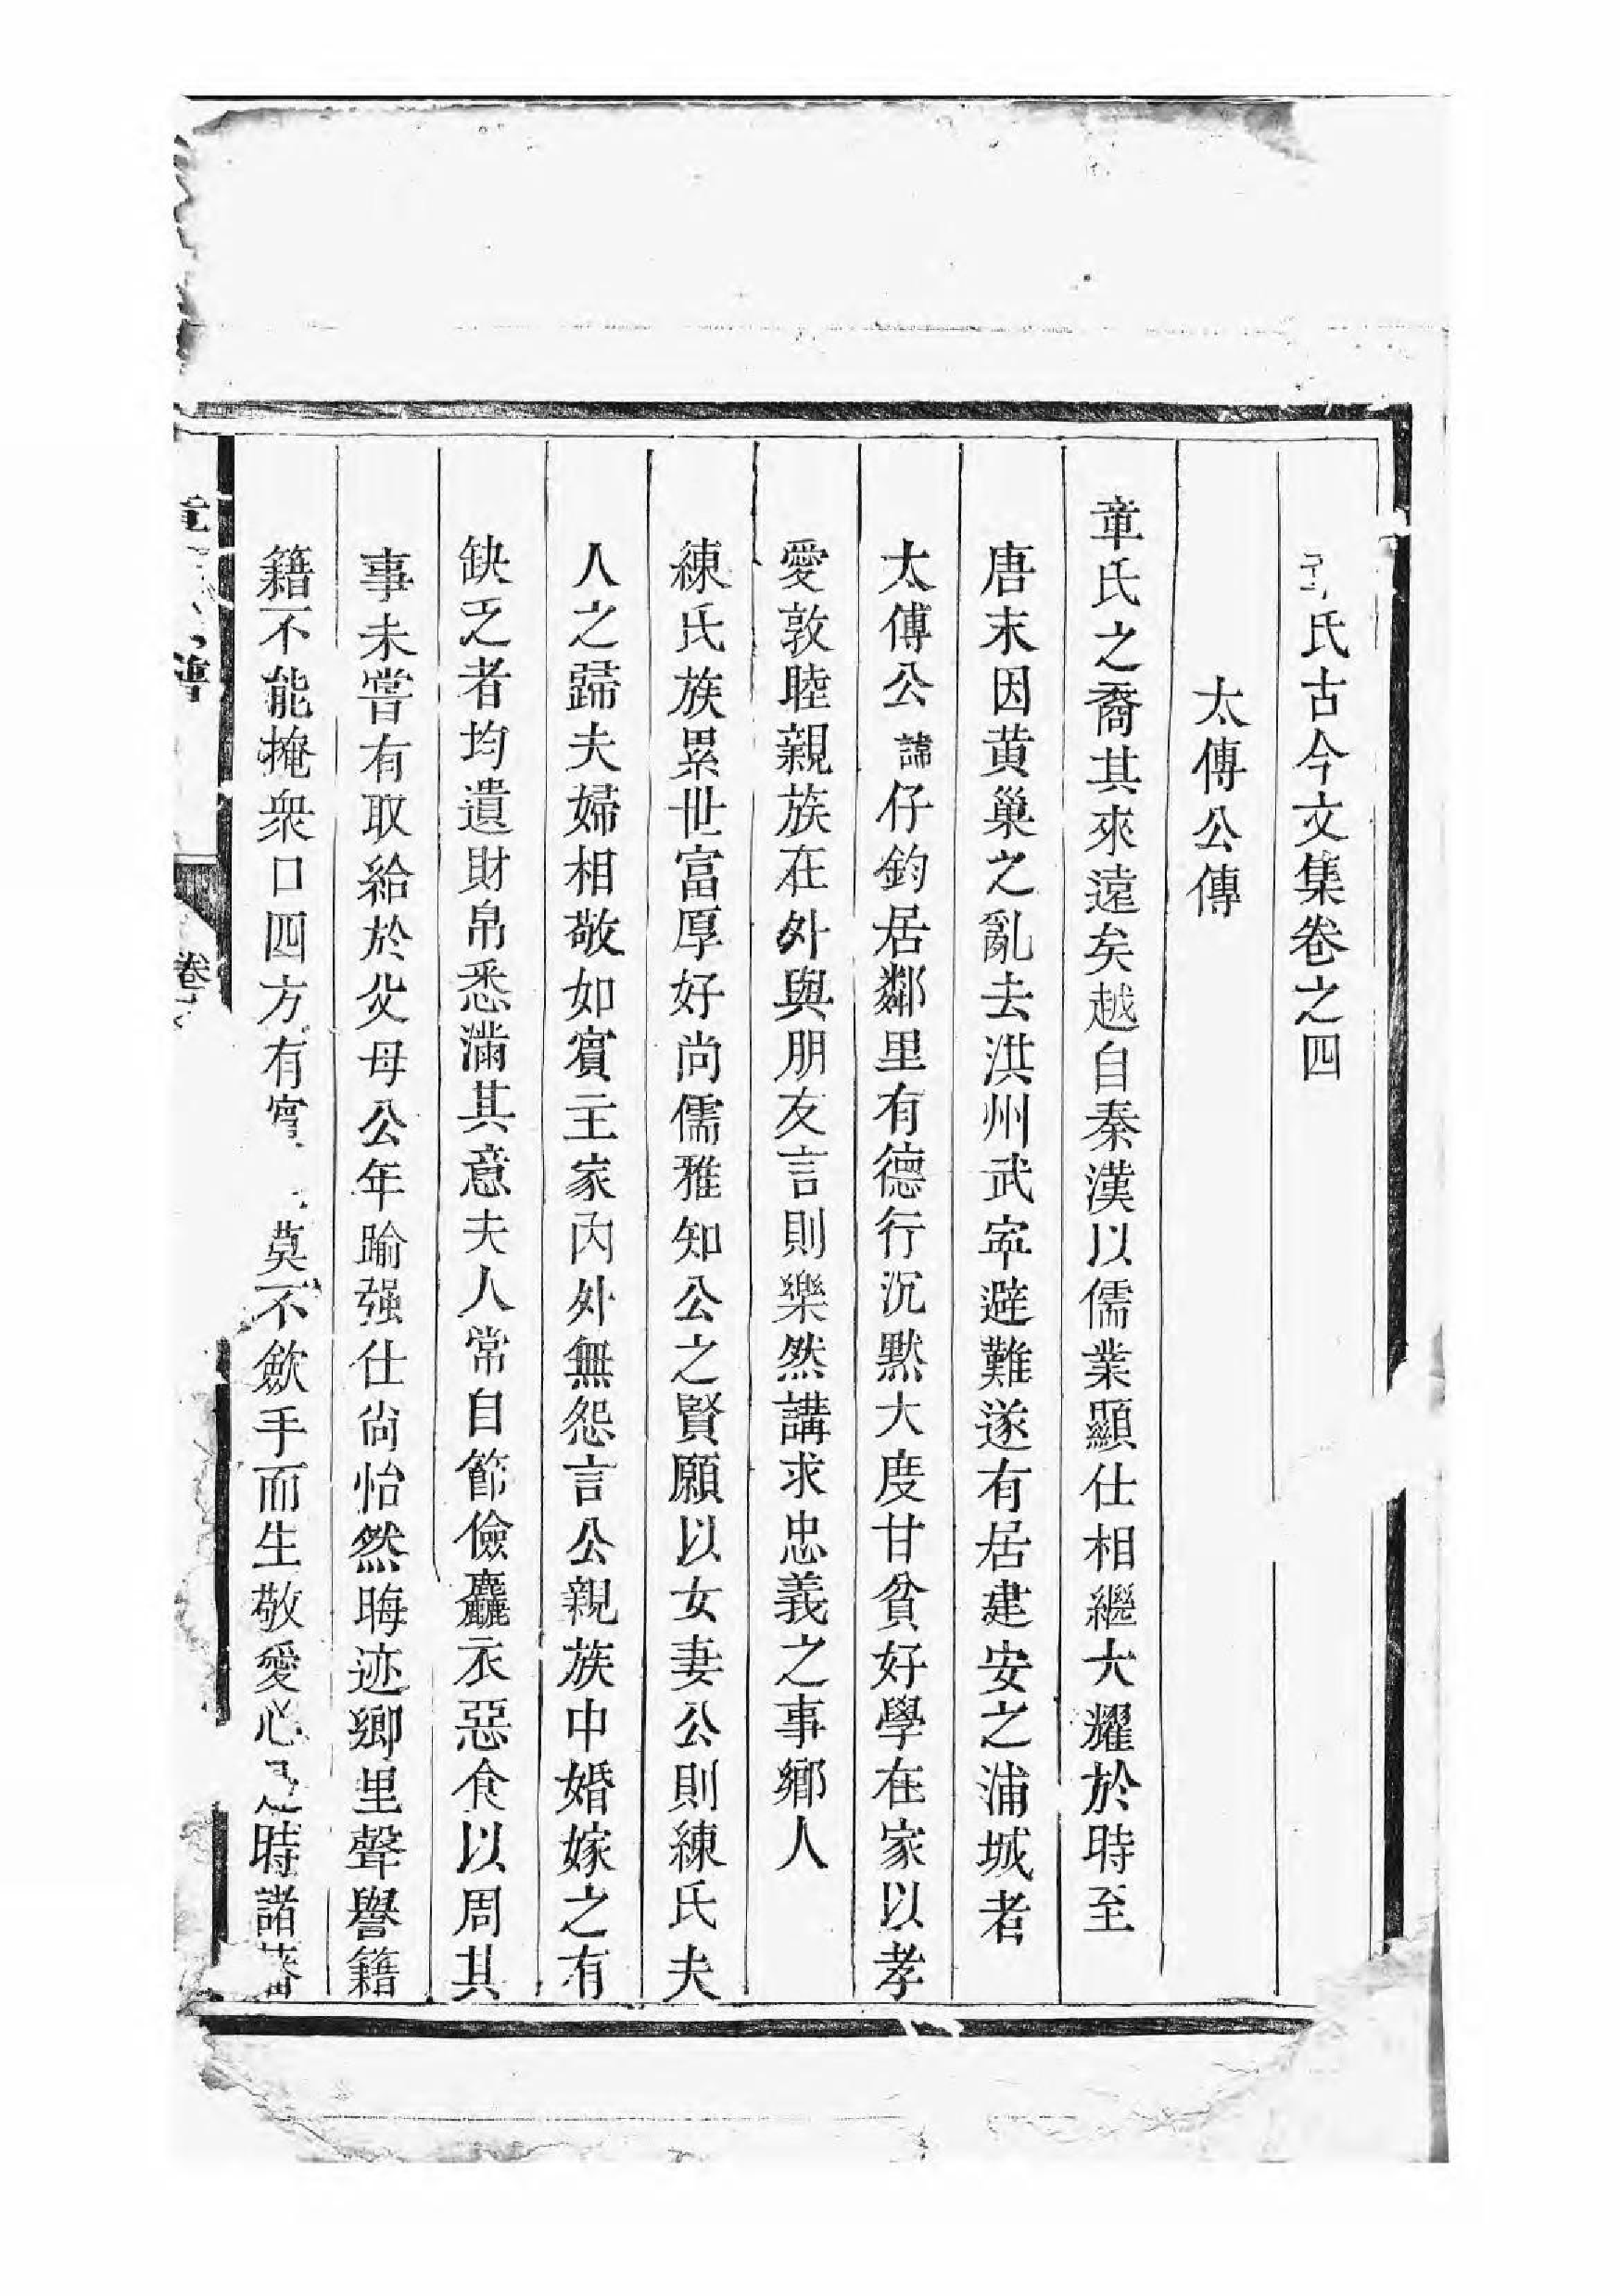 氏古今文集卷之四
太傅公傳
章氏之裔其來遠矣越自秦漢以儒業顯仕相繼大耀於時至
唐末因黃巢之亂去洪州武寧避難遂有居建安之浦城者
太傅公諱仔鈞居鄰里有德行沉默大度甘貧好學在家以孝
愛敦睦親族在外與朋友言則樂然講求忠義之事鄉人
練氏族累世富厚好尚儒雅知公之賢願以女妻公則練氏夫
人之歸夫婦相敬如賓主家內外無怨言公親族中婚嫁之有
缺乏者均遺財帛悉滿其意夫人常自節儉麤衣惡食以周其
事未嘗有取給於父母公年踰强仕尚怡然晦迹鄉里聲譽籍
籍不能掩衆口四方有 莫不斂手而生敬愛心是時諸藩
譜
卷